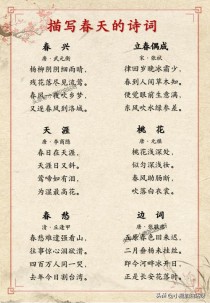 描写春天的诗词
春兴
唐·武元衡
杨柳阴阴细雨晴，
残花落尽见流莺。
春风一夜吹乡梦，
又逐春风到洛城。
立春偶成
宋·张栻
律回岁晚冰霜少，
春到人间草木知。
便觉眼前生意满，
东风吹水绿参差。
天涯
唐·李商隐
春日在天涯，
天涯日又斜。
莺啼如有泪，
为湿最高花。
桃花
唐·元稹
桃花浅深处，
似匀深浅妆。
春风助肠断，
吹落白衣裳。
春愁
清·丘逢甲
春愁难遣强看山，
往事惊心泪欲潸。
四百万人同一哭，
去年今日割台湾。
边词
唐·张敬忠
五原春色旧来迟，
二月垂杨未挂丝。
即今河畔冰开日，
正是长安花落时。